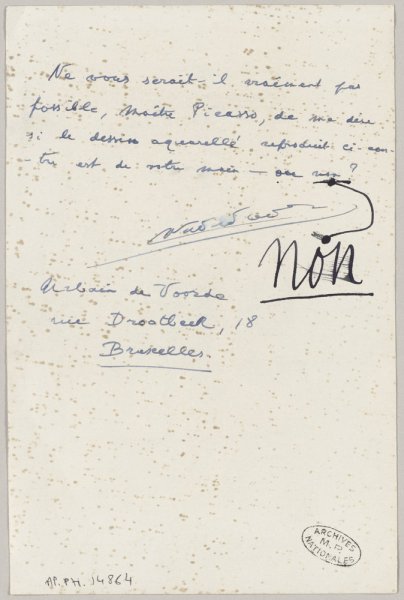 Ne vous serait-il vraiment pas
possible, Maître Picasso, de me dire
si le dessin aquarellé reproduit ci-con-
tre est de votre main — ou non ?
non
Urbain de Voorde
rue Drootbeek, 18
Bruxelles.
ARCHIVES
M.P.
NATIONALES
AP.PH. 14864